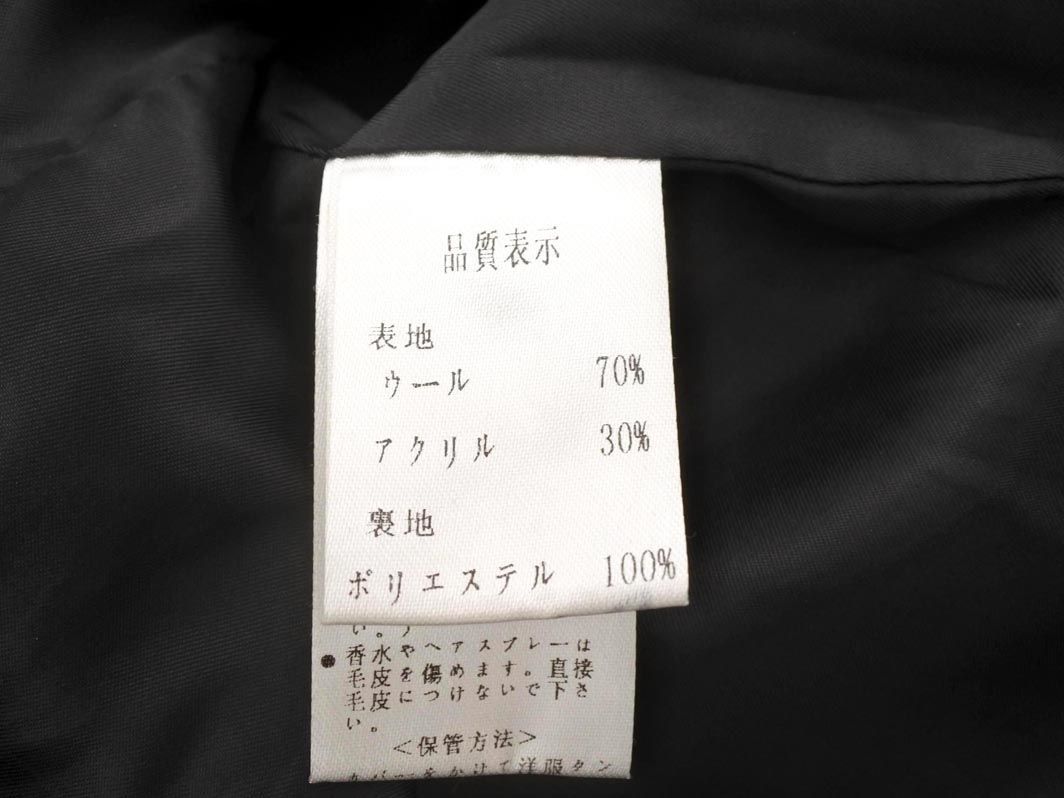 品質表示
表地
ウール 70%
アクリル 30%
裏地
ポリエステル 100%
い。
●香水やヘアスプレーは
毛皮を傷めます。直接
毛皮につけないで下さ
い。
<保管方法>
をかけて洋服タン